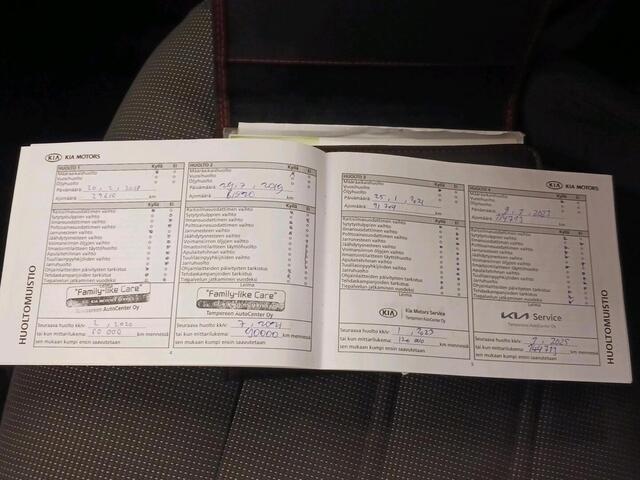 KIA KIA MOTORS
HUOLTO 1 Kyllä Ei
Määräaikaishuolto
Vuosihuolto
Öljyhuolto
Päivämäärä 20, 2, 2018
Ajomäärä km
Raitisilmasuodattimen vaihto
Sytytystulppien vaihto
Ilmansuodattimen vaihto
Polttoainesuodattimen vaihto
Jarrunesteen vaihto
Jäähdytysnesteen vaihto
Voimansiirron öljyjen vaihto
Ilmastointilaitteen täyttöhuolto
Apulaitehihnan vaihto
Tuulilasipyyhkijöiden vaihto
Jarruhuolto
Ohjainlaitteiden päivitysten tarkistus
Tehdaskampanjoiden tarkistus
Tiepalvelun jatkaminen vuodeksi
Leima
"Family-like Care"
Tampereen AutoCenter Oy
Seuraava huolto kk/v: 2, 2020
tai kun mittarilukema: km mennessä
sen mukaan kumpi ensin saavutetaan
4
HUOLTO 2 Kyllä Ei
Määräaikaishuolto
Vuosihuolto
Öljyhuolto
Päivämäärä 7, 2019
Ajomäärä km
Raitisilmasuodattimen vaihto
Sytytystulppien vaihto
Ilmansuodattimen vaihto
Polttoainesuodattimen vaihto
Jarrunesteen vaihto
Jäähdytysnesteen vaihto
Voimansiirron öljyjen vaihto
Ilmastointilaitteen täyttöhuolto
Apulaitehihnan vaihto
Tuulilasipyyhkijöiden vaihto
Jarruhuolto
Ohjainlaitteiden päivitysten tarkistus
Tehdaskampanjoiden tarkistus
Tiepalvelun jatkaminen vuodeksi
Leima
"Family-like Care"
Tampereen AutoCenter Oy
Seuraava huolto kk/v: 7, 2021
tai kun mittarilukema: km mennessä
sen mukaan kumpi ensin saavutetaan
HUOLTOMUISTIO
HUOLTO 3 Kyllä Ei
Määräaikaishuolto
Vuosihuolto
Öljyhuolto
Päivämäärä 25, 1, 2021
Ajomäärä km
Raitisilmasuodattimen vaihto
Sytytystulppien vaihto
Ilmansuodattimen vaihto
Polttoainesuodattimen vaihto
Jarrunesteen vaihto
Jäähdytysnesteen vaihto
Voimansiirron öljyjen vaihto
Ilmastointilaitteen täyttöhuolto
Apulaitehihnan vaihto
Tuulilasipyyhkijöiden vaihto
Jarruhuolto
Ohjainlaitteiden päivitysten tarkistus
Tehdaskampanjoiden tarkistus
Tiepalvelun jatkaminen vuodeksi
Leima
KIA Kia Motors Service
Tampereen AutoCenter Oy
Seuraava huolto kk/v: 1, 2023
tai kun mittarilukema: km mennessä
sen mukaan kumpi ensin saavutetaan
KIA KIA MOTORS
HUOLTO 4 Kyllä Ei
Määräaikaishuolto
Vuosihuolto
Öljyhuolto
Päivämäärä 2023
Ajomäärä 114713 km
Raitisilmasuodattimen vaihto
Sytytystulppien vaihto
Ilmansuodattimen vaihto
Polttoainesuodattimen vaihto
Jarrunesteen vaihto
Jäähdytysnesteen vaihto
Voimansiirron öljyjen vaihto
Ilmastointilaitteen täyttöhuolto
Apulaitehihnan vaihto
Tuulilasipyyhkijöiden vaihto
Jarruhuolto
Ohjainlaitteiden päivitysten tarkistus
Tehdaskampanjoiden tarkistus
Tiepalvelun jatkaminen vuodeksi
Leima
KIA Service
Tampereen AutoCenter Oy
Seuraava huolto kk/v: 2025
tai kun mittarilukema: 144713 km mennessä
sen mukaan kumpi ensin saavutetaan
5
HUOLTOMUISTIO